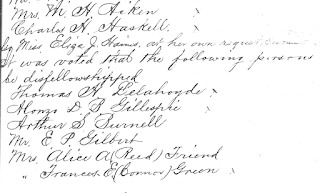 Mrs. M. H. Aiken "
Charles H. Haskell. "
by Miss Eliza J. Haines, at her own request
It was voted that the following persons
be disfellowshipped
Thomas H. Delahoyde "
Alonzo D. P. Gillesphie "
Arthur S. Burnell "
Mr. E. P. Gilbert
Mrs. Alice A (Reed) Friend
" Frances E (Connor) Green "